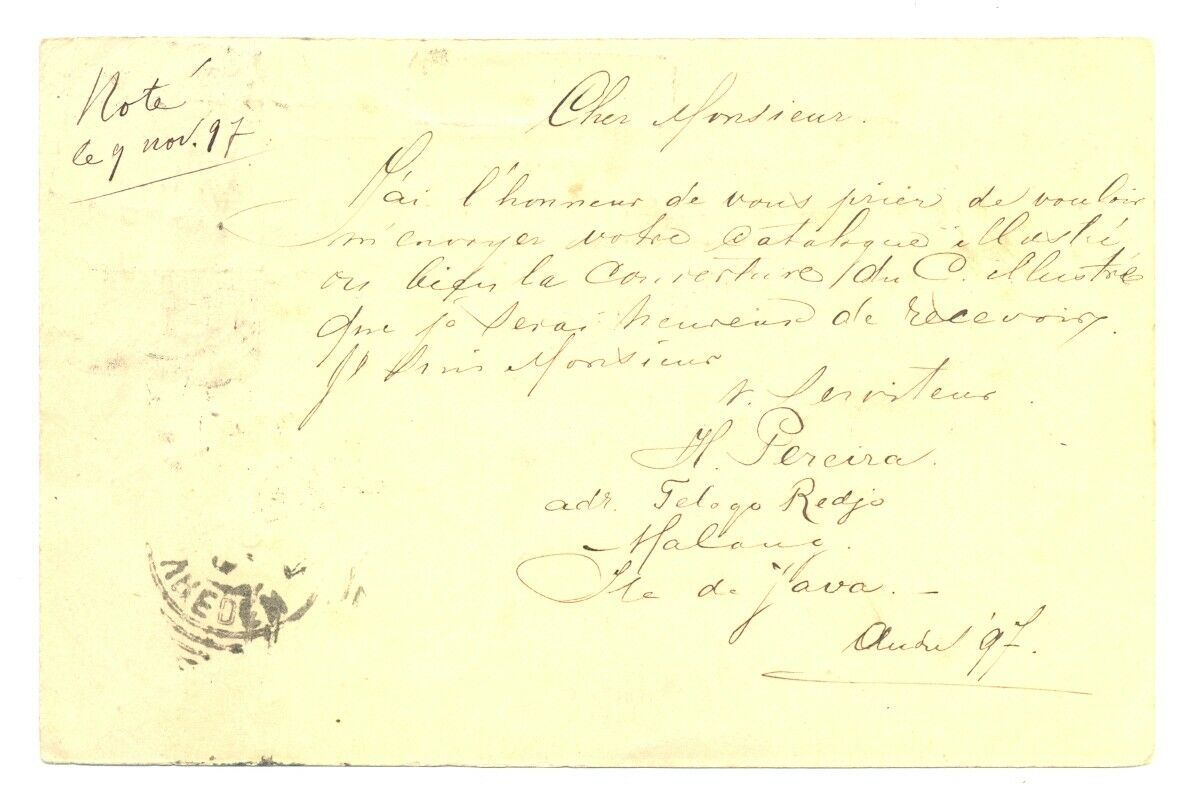 Noté
le 9 nov. 97
Cher Monsieur.
J'ai l'honneur de vous prier de vouloir
m'envoyer votre catalogue illustré
ou bien la couverture du C. illustré
que je serai heureux de recevoir.
Je suis Monsieur
v. Serviteur.
H. Pereira.
adr. Telogo Redjo
Malang.
Ile de Java. –
'97.